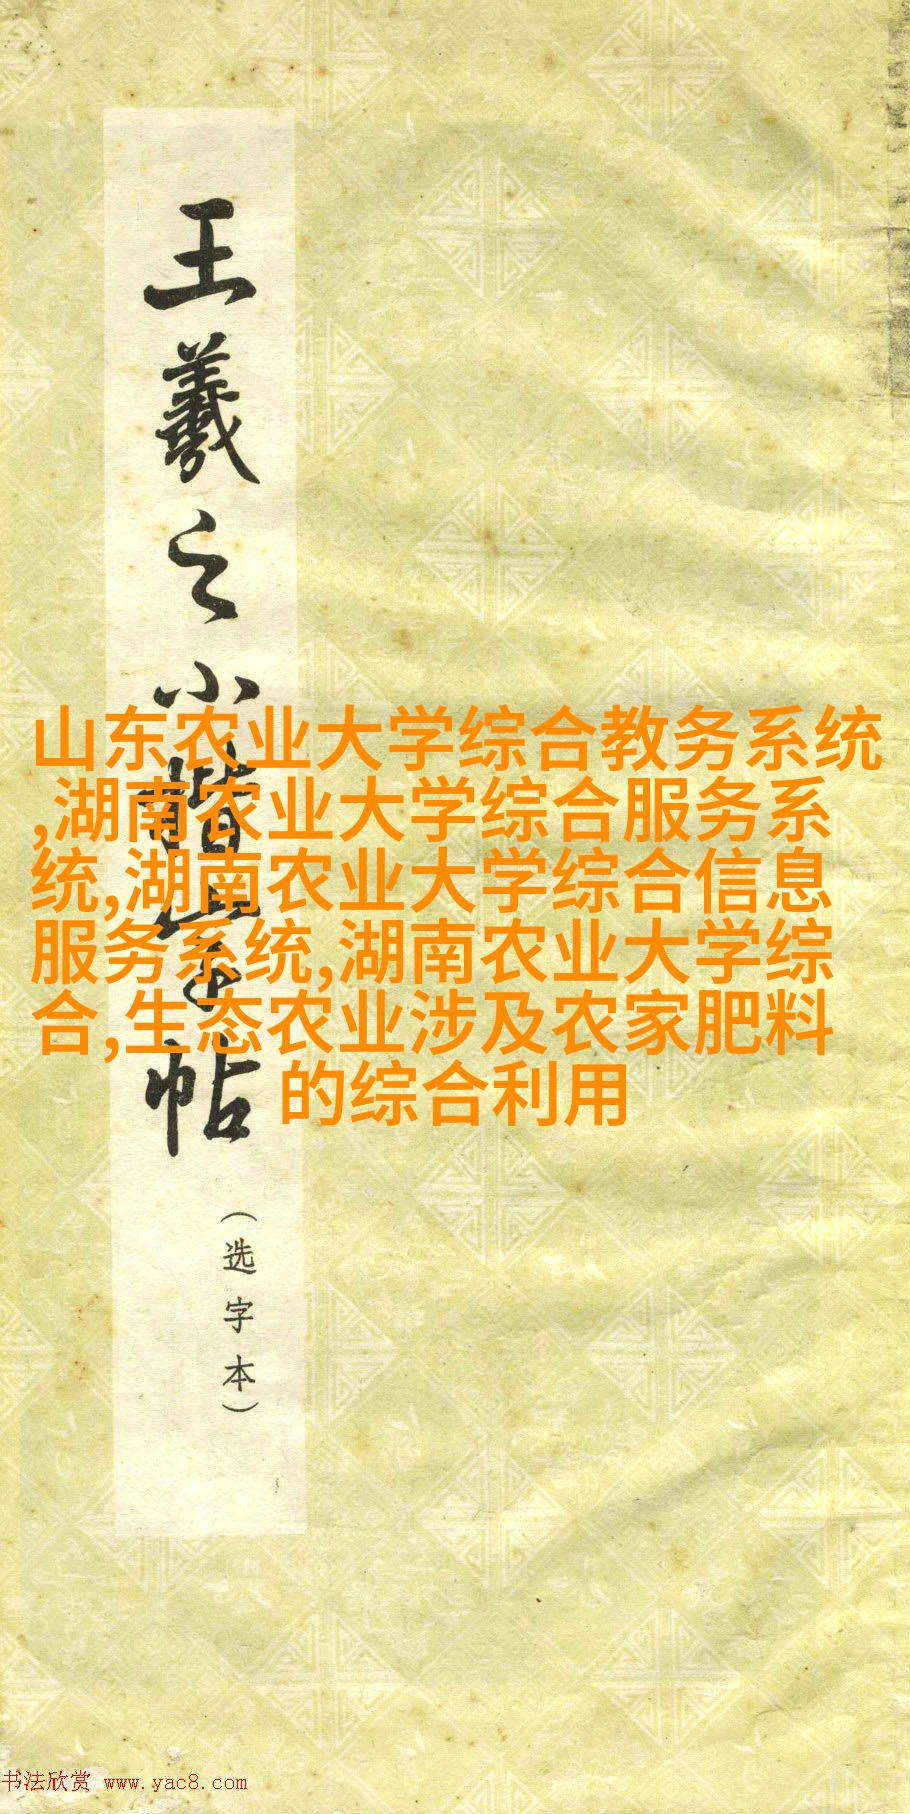 王羲之小楷字帖
山东农业大学综合教务系统
,湖南农业大学综合服务系
统,湖南农业大学综合信息
服务系统,湖南农业大学综
合,生态农业涉及农家肥料
的综合利用
(选字本)
书法欣赏 www.yac8.com